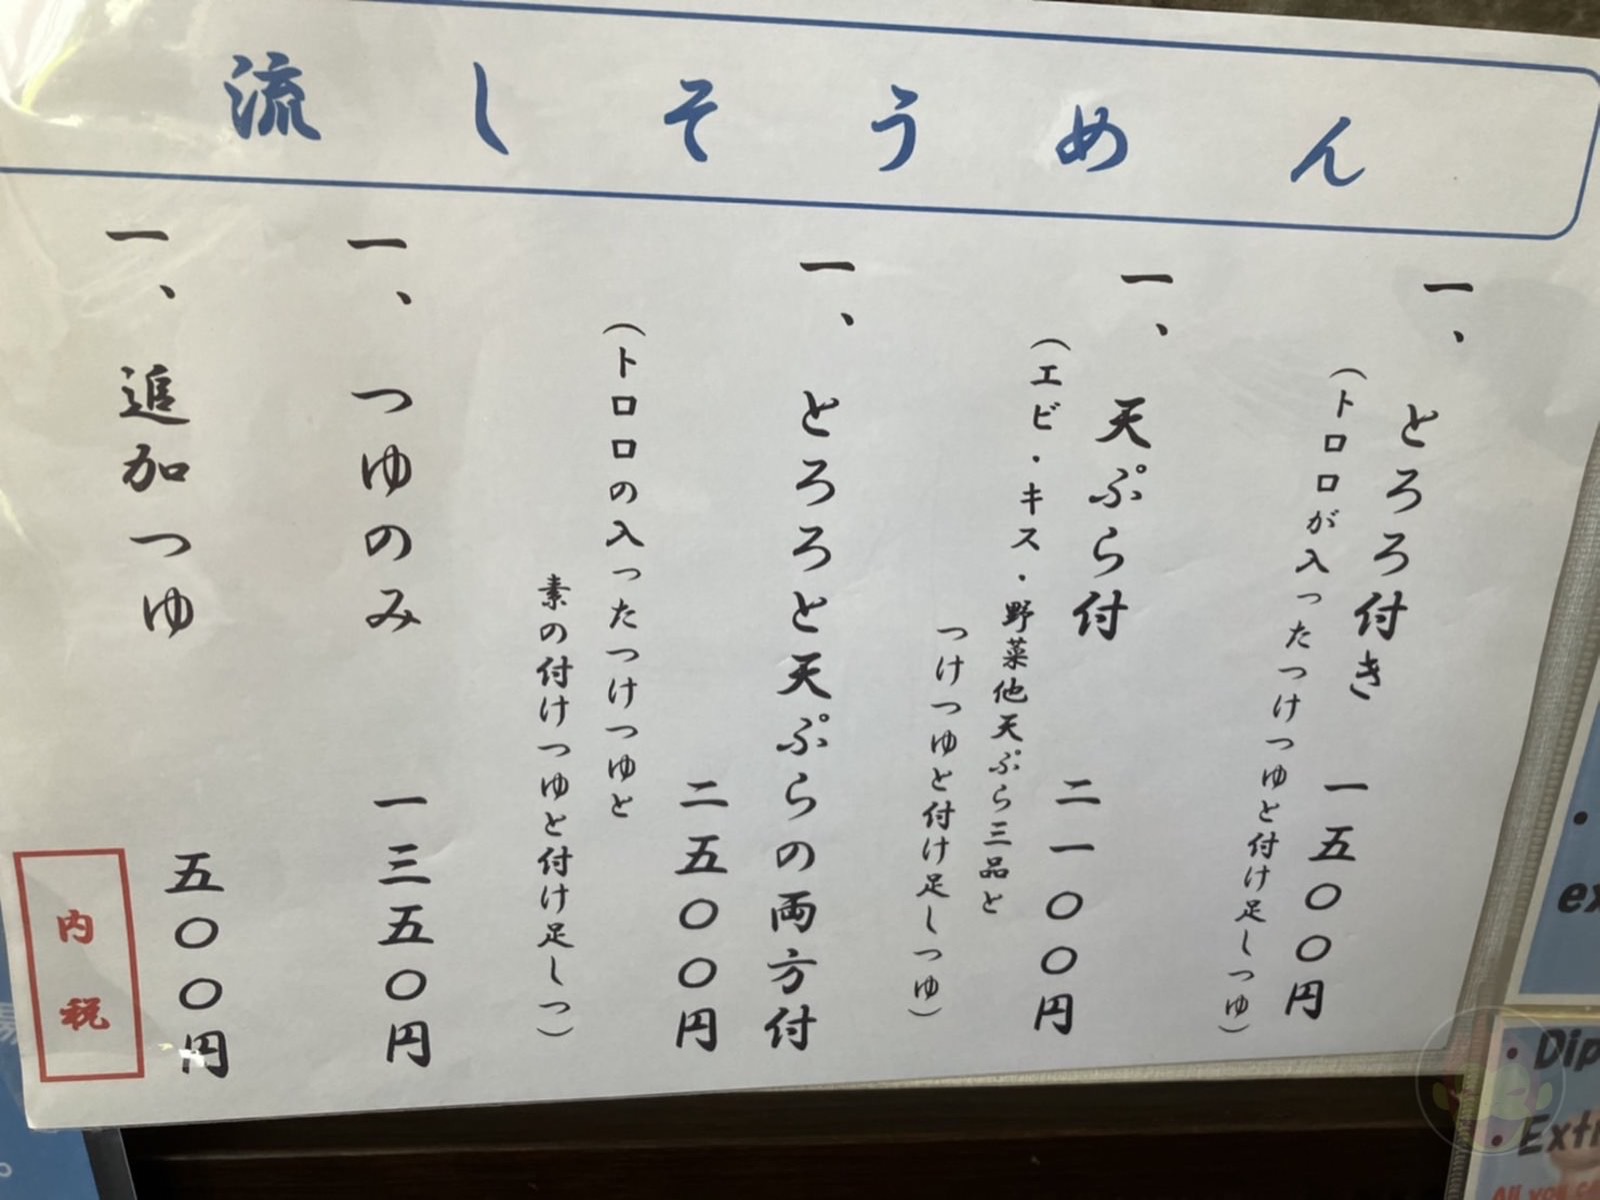 流しそうめん
一、とろろ付き 一五〇〇円
(トロロが入ったつけつゆと付け足しつゆ)
一、天ぷら付 二一〇〇円
(エビ・キス・野菜他天ぷら三品と
つけつゆと付け足しつゆ)
一、とろろと天ぷらの両方付
二五〇〇円
(トロロの入ったつけつゆと
素の付けつゆと付け足しつ)
一、つゆのみ 一三五〇円
一、追加つゆ 五〇〇円
内税
・ex
・Dip
・Ext